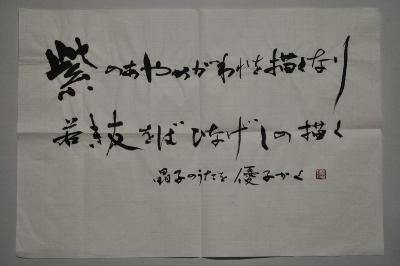 紫のあやめがわれを描くなり
若き友をばひなげしの描く
晶子のうたを 優子かく